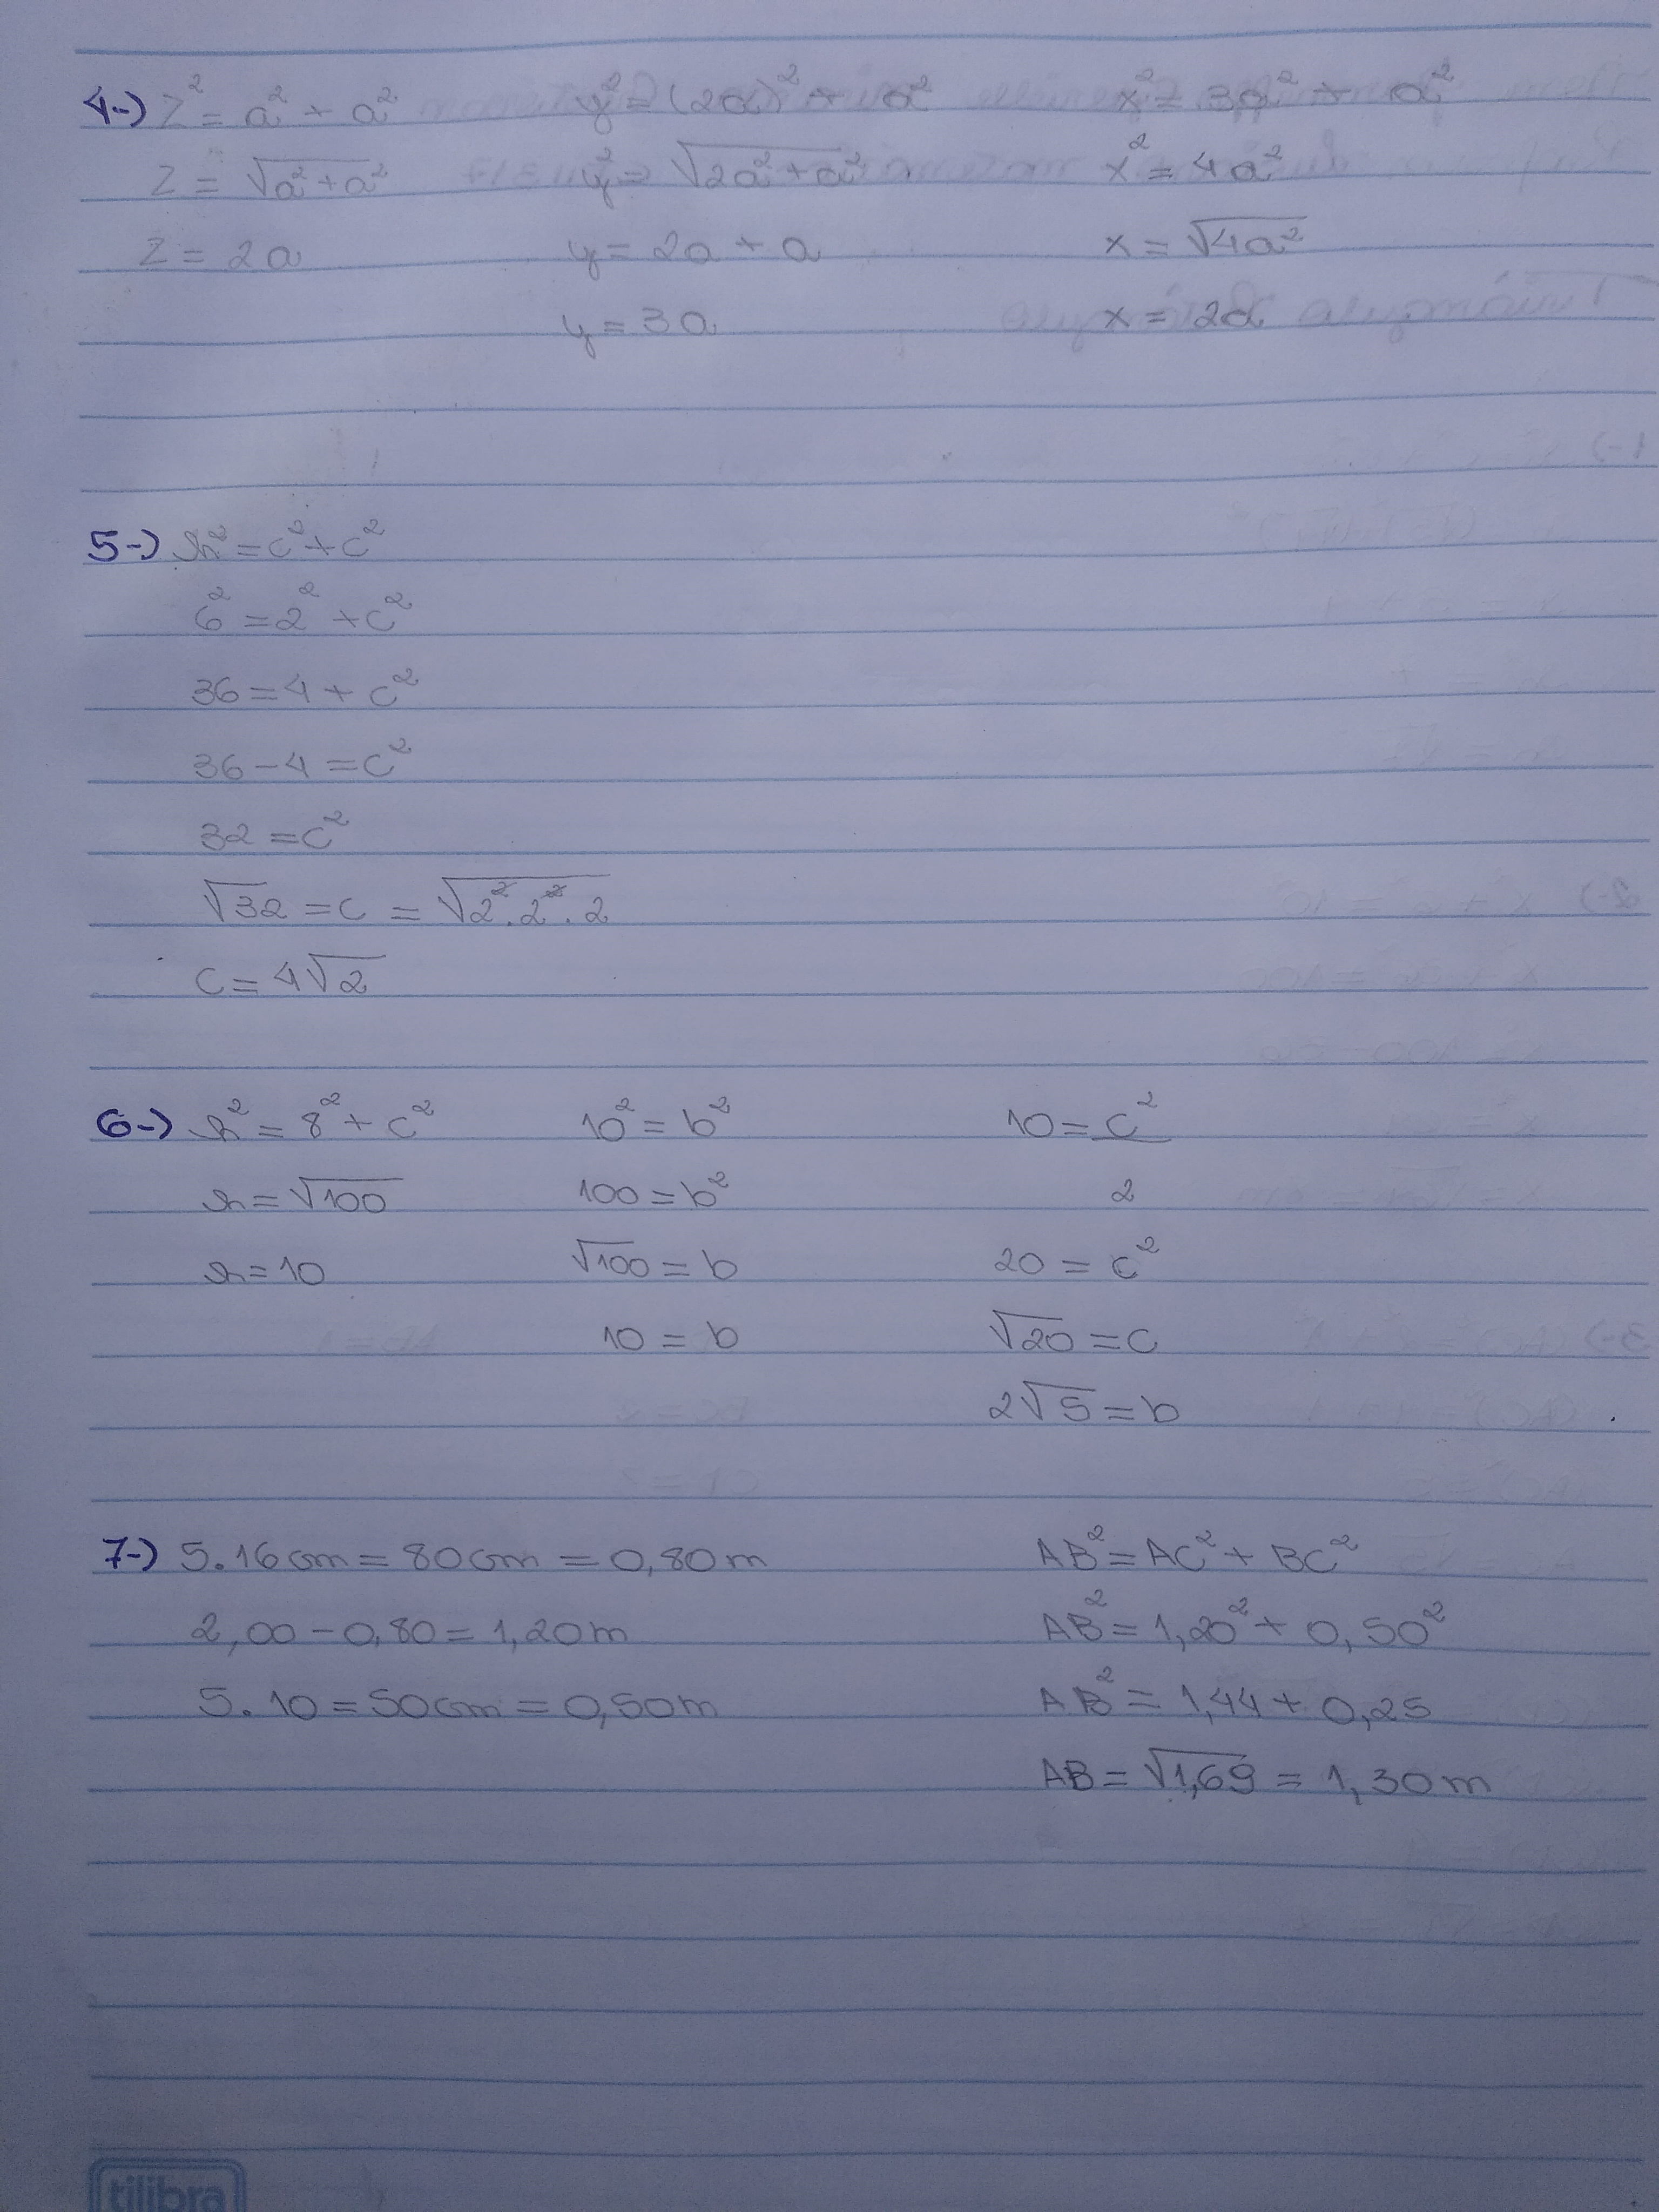 4-) Z² = a² + a²
Z = √a² + a²
Z = 2a
y² = (2a)² + a²
y² = √2a² + a²
y = 2a + a
y = 3a
x² = 3a² + a²
x² = 4a²
x = √4a²
x = 2a
5-) h² = c² + c²
6² = 2² + c²
36 = 4 + c²
36 - 4 = c²
32 = c²
√32 = c = √2².2².2
c = 4√2
6-) h² = 8² + c²
h = √100
h = 10
10² = b²
100 = b²
√100 = b
10 = b
10 = c²
2
20 = c²
√20 = c
2√5 = b
7-) 5.16cm = 80cm = 0,80m
2,00 - 0,80 = 1,20m
5.10 = 50cm = 0,50m
AB² = AC² + BC²
AB² = 1,20² + 0,50²
AB² = 1,44 + 0,25
AB = √1,69 = 1,30m
tilibra